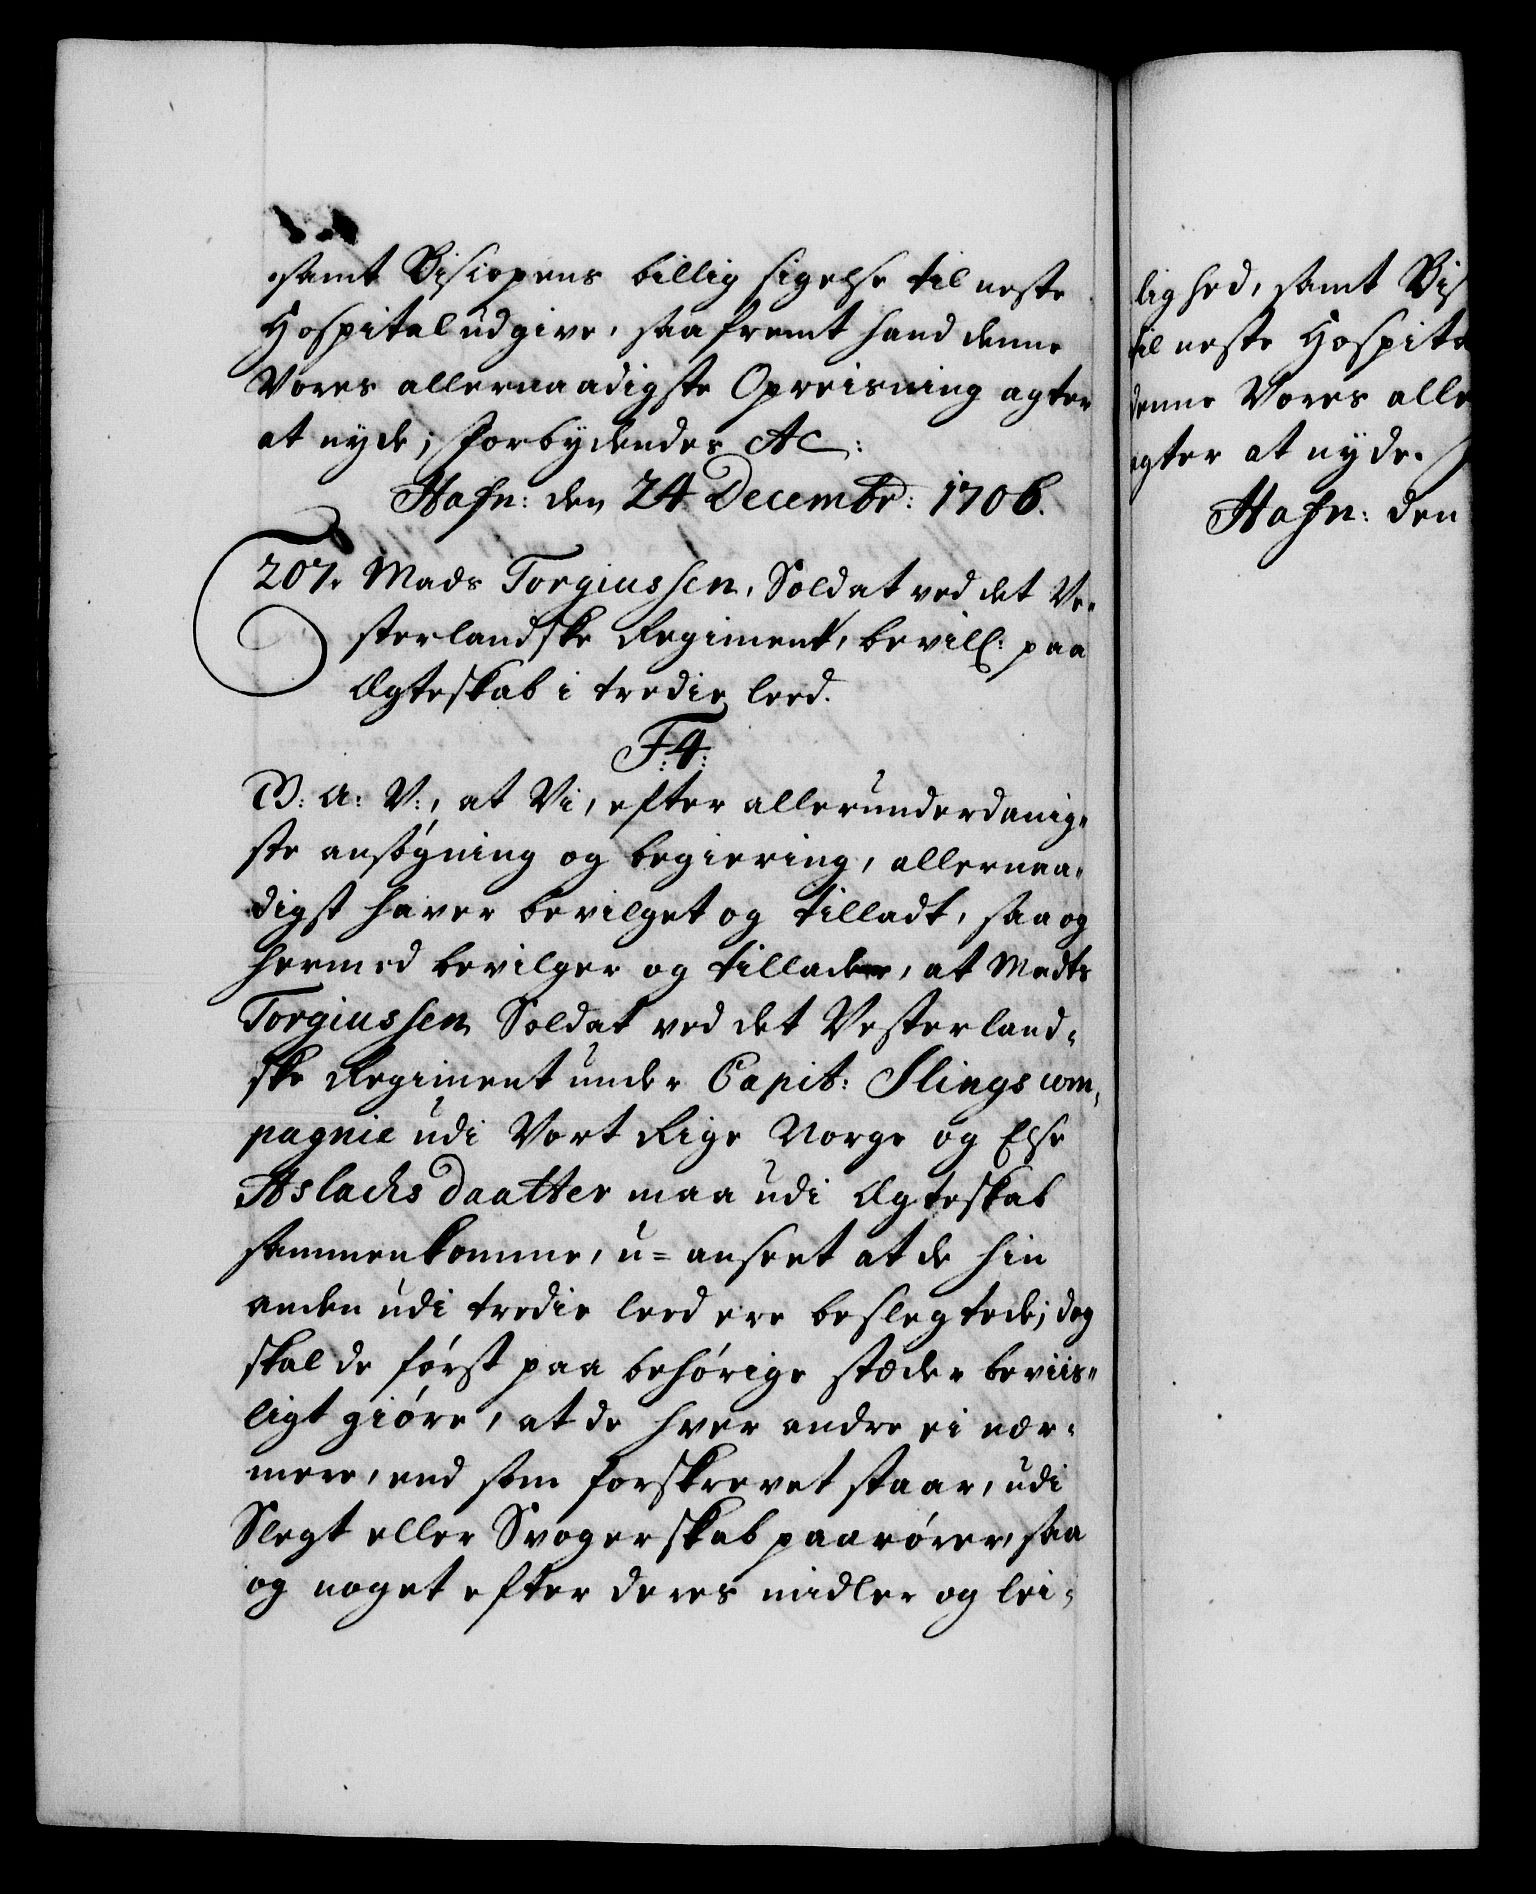 samt Biscopens billig sigelse til neste
Hospital udgive, saa fremt hand denne
Vores allernaadigste Opreisning agter
at nyde; forbydendes &c:
Hafn: den 24 Decembr: 1706.
207. Mads Torgiussen, Soldat ved det Ve-
sterlandske Regiment, bevill: paa
Ægteskab i tredie leed.
F:4:
G: A: V:, at Vi, efter allerunderdanig-
ste ansøgning og begiering, allernaa-
digst haver bevilget og tilladt, saa og
hermed bevilger og tillader, at Madts
Torgiussen Soldat ved det Vesterland-
ske Regiment under Capit: Slings com-
pagnie udi Vort Rige Norge og Else
Aslachs daatter maa udi Ægteskab
sammenkomme, u=anseet at de hin
anden udi tredie leed ere beslegtede; dog
skal de først paa behørige stæder beviis-
ligt giøre, at de hver andre ei nær-
mere, end som forskrevet staar, udi
Slegt eller Svogerskab paarører, saa
og noget efter deres midler og lei-
lighed, samt Bis
til neste Hospita
denne Vores alle
agter at nyde.
Hafn: den